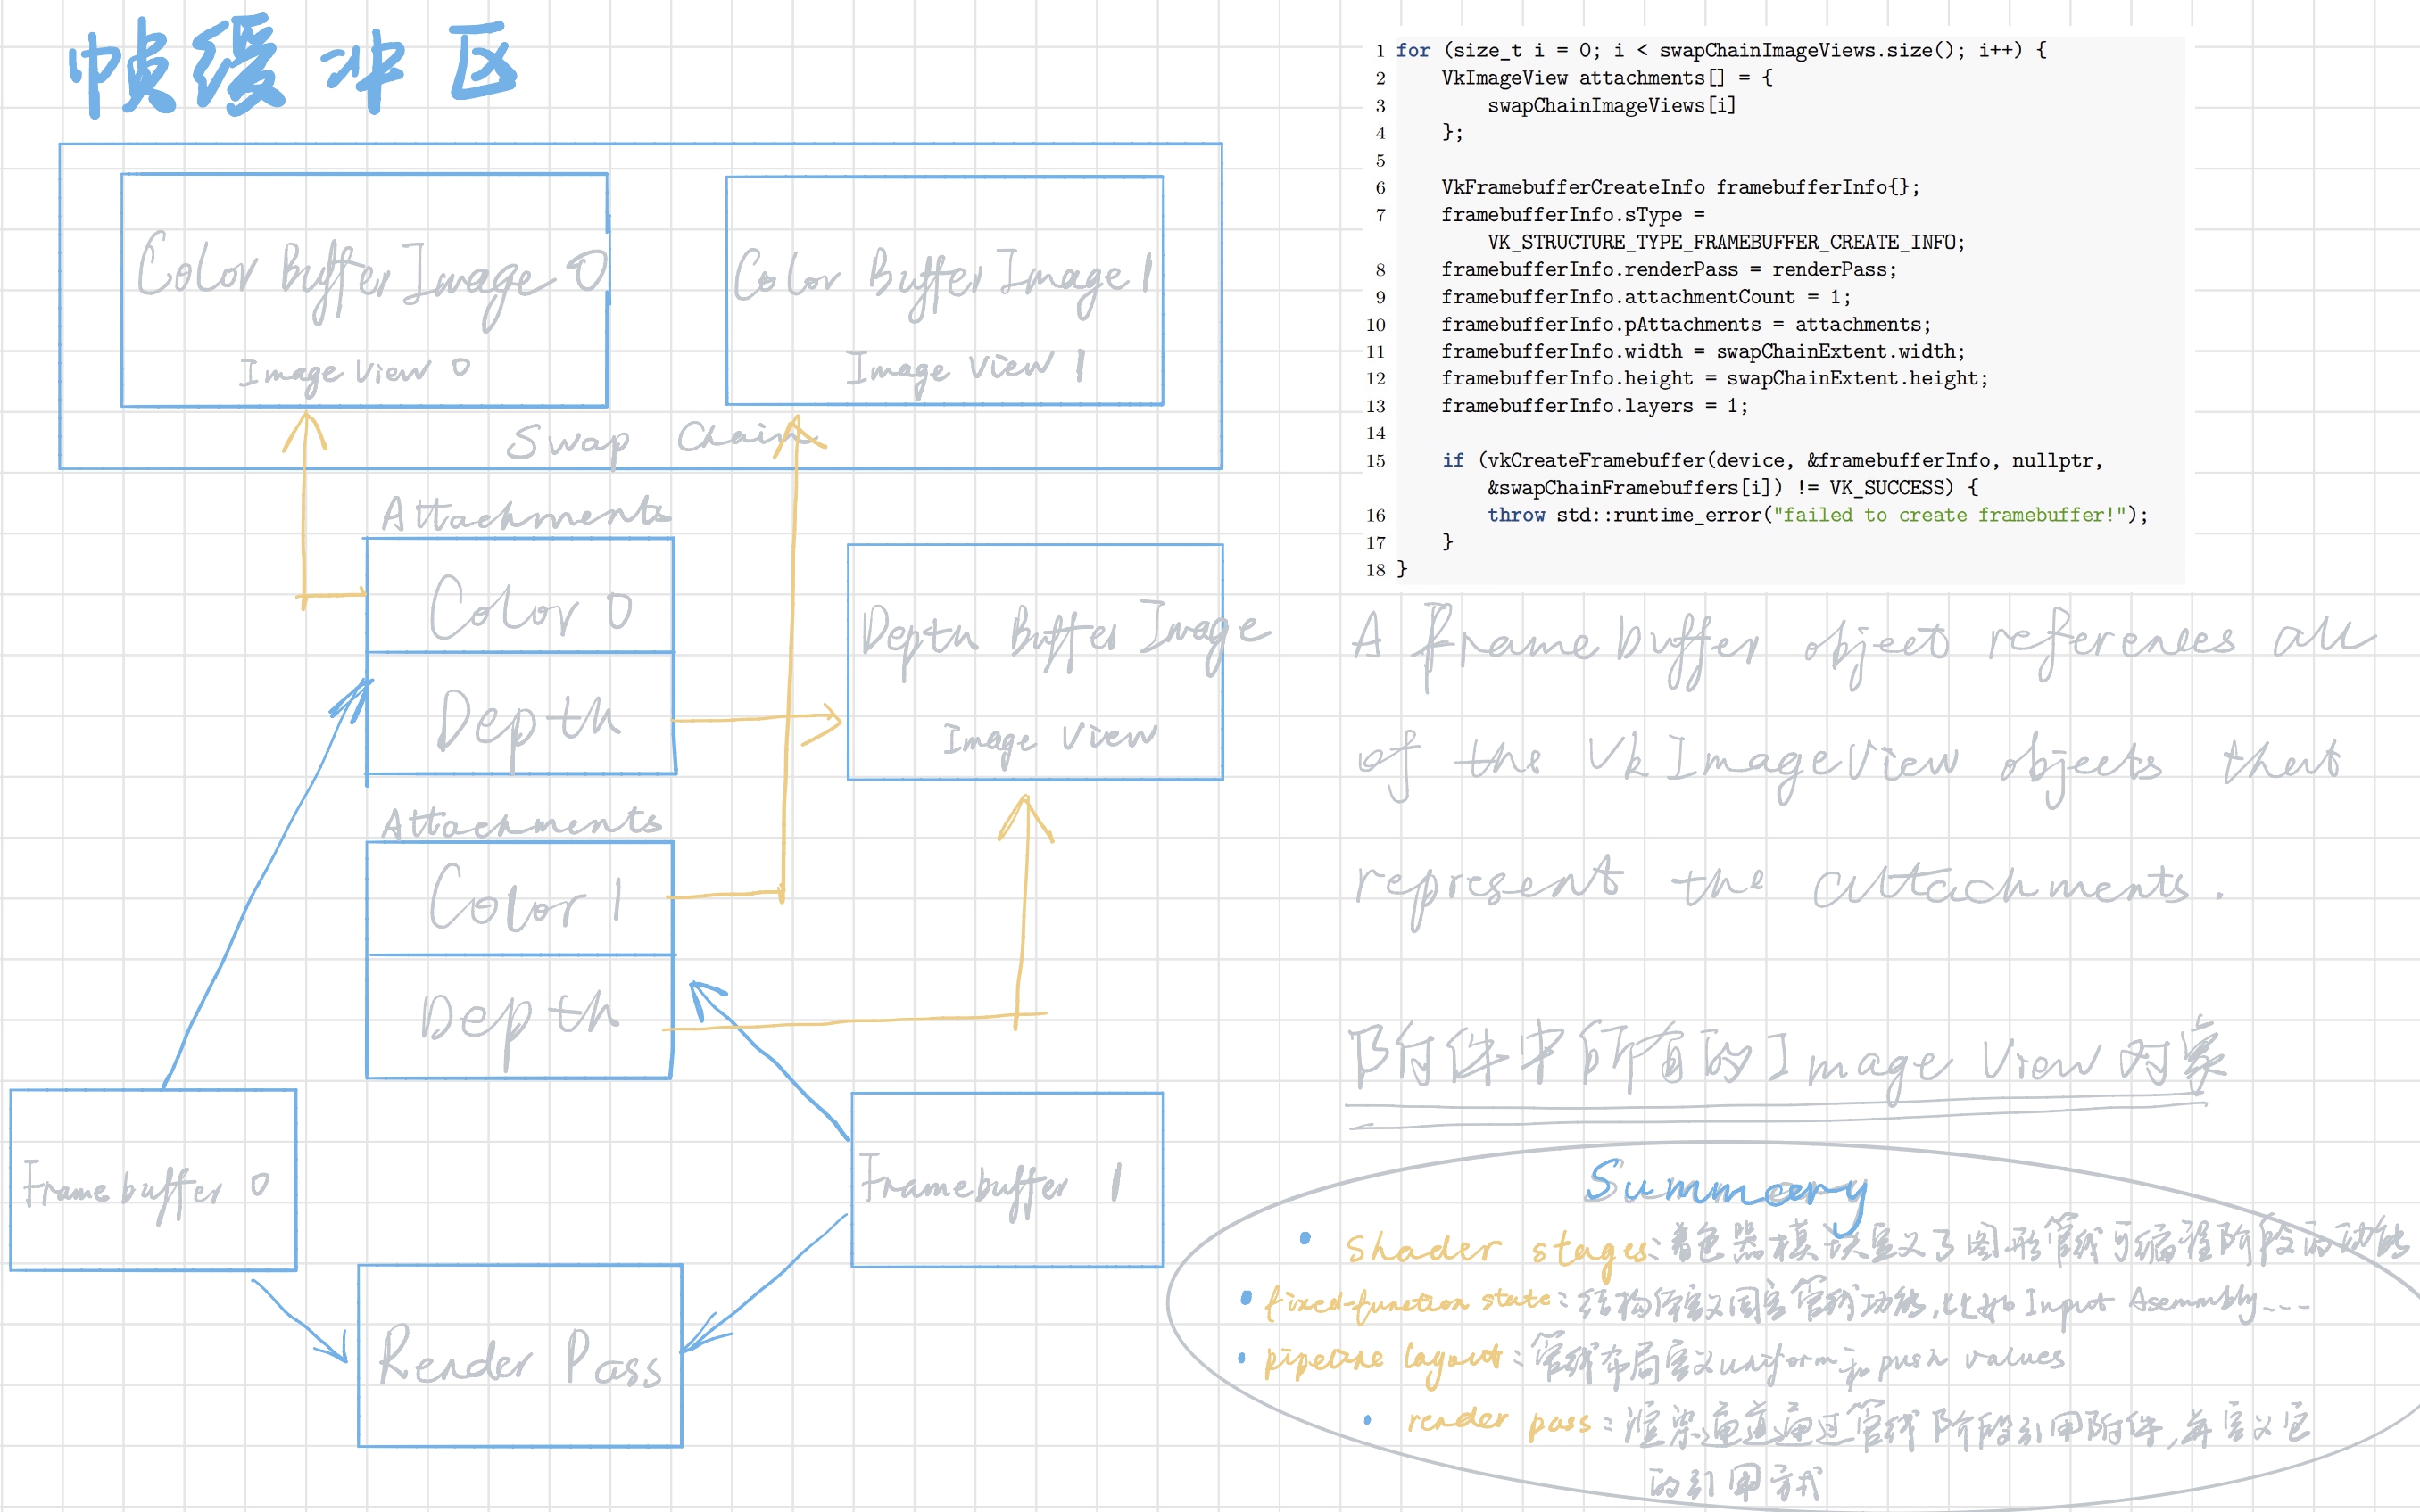 帧缓冲区
Color Buffer Image 0
Image View 0
Color Buffer Image 1
Image View 1
Swap Chain
Attachments
Color 0
Depth
Depth Buffer Image
Image View
Attachments
Color 1
Depth
Framebuffer 0
Framebuffer 1
Render Pass
1 for (size_t i = 0; i < swapChainImageViews.size(); i++) {
2 VkImageView attachments[] = {
3 swapChainImageViews[i]
4 };
5
6 VkFramebufferCreateInfo framebufferInfo{};
7 framebufferInfo.sType =
VK_STRUCTURE_TYPE_FRAMEBUFFER_CREATE_INFO;
8 framebufferInfo.renderPass = renderPass;
9 framebufferInfo.attachmentCount = 1;
10 framebufferInfo.pAttachments = attachments;
11 framebufferInfo.width = swapChainExtent.width;
12 framebufferInfo.height = swapChainExtent.height;
13 framebufferInfo.layers = 1;
14
15 if (vkCreateFramebuffer(device, &framebufferInfo, nullptr,
&swapChainFramebuffers[i]) != VK_SUCCESS) {
16 throw std::runtime_error("failed to create framebuffer!");
17 }
18 }
A framebuffer object references all
of the VkImageView objects that
represent the attachments.
附件中所有的Image View对象
Summary
• Shader stages:着色器模块定义了图形管线可编程阶段的功能
• fixed-function state:结构体定义固定管线功能,比如Input Asemmbly...
• pipeline layout:管线布局定义uniform和push values
• render pass:渲染通道通过管线阶段引用附件,并定义它
的引用方式